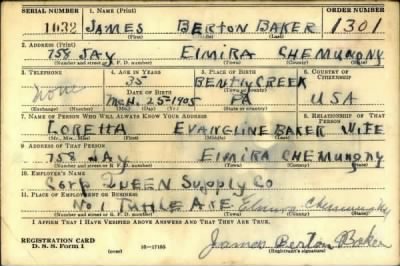 SERIAL NUMBER 1. NAME (Print) ORDER NUMBER
1032 JAMES BERTON BAKER 1301
(First) (Middle) (Last)
2. ADDRESS (Print)
758 JAY ELMIRA CHEMUNG NY
(Number and street or R. F. D. number) (Town) (County) (State)
3. TELEPHONE 4. AGE IN YEARS 5. PLACE OF BIRTH 6. COUNTRY OF CITIZENSHIP
none 35 BENTLY CREEK
DATE OF BIRTH (Town or county)
McH. 25-1905 PA USA
(Exchange) (Number) (Mo.) (Day) (Yr.) (State or country)
7. NAME OF PERSON WHO WILL ALWAYS KNOW YOUR ADDRESS 8. RELATIONSHIP OF THAT PERSON
LORETTA EVANGLINE BAKER WIFE
(Mr., Mrs., Miss) (First) (Middle) (Last)
9. ADDRESS OF THAT PERSON
758 JAY ELMIRA CHEMUNG NY
(Number and street or R. F. D. number) (Town) (County) (State)
10. EMPLOYER'S NAME
Corp QUEEN Supply Co
11. PLACE OF EMPLOYMENT OR BUSINESS
No 1 TUTTLE AVE Elmira Chemung NY
(Number and street or R. F. D. number) (Town) (County) (State)
I AFFIRM THAT I HAVE VERIFIED ABOVE ANSWERS AND THAT THEY ARE TRUE.
REGISTRATION CARD James Berton Baker
D. S. S. Form 1 (over) 16—17105 (Registrant's signature)